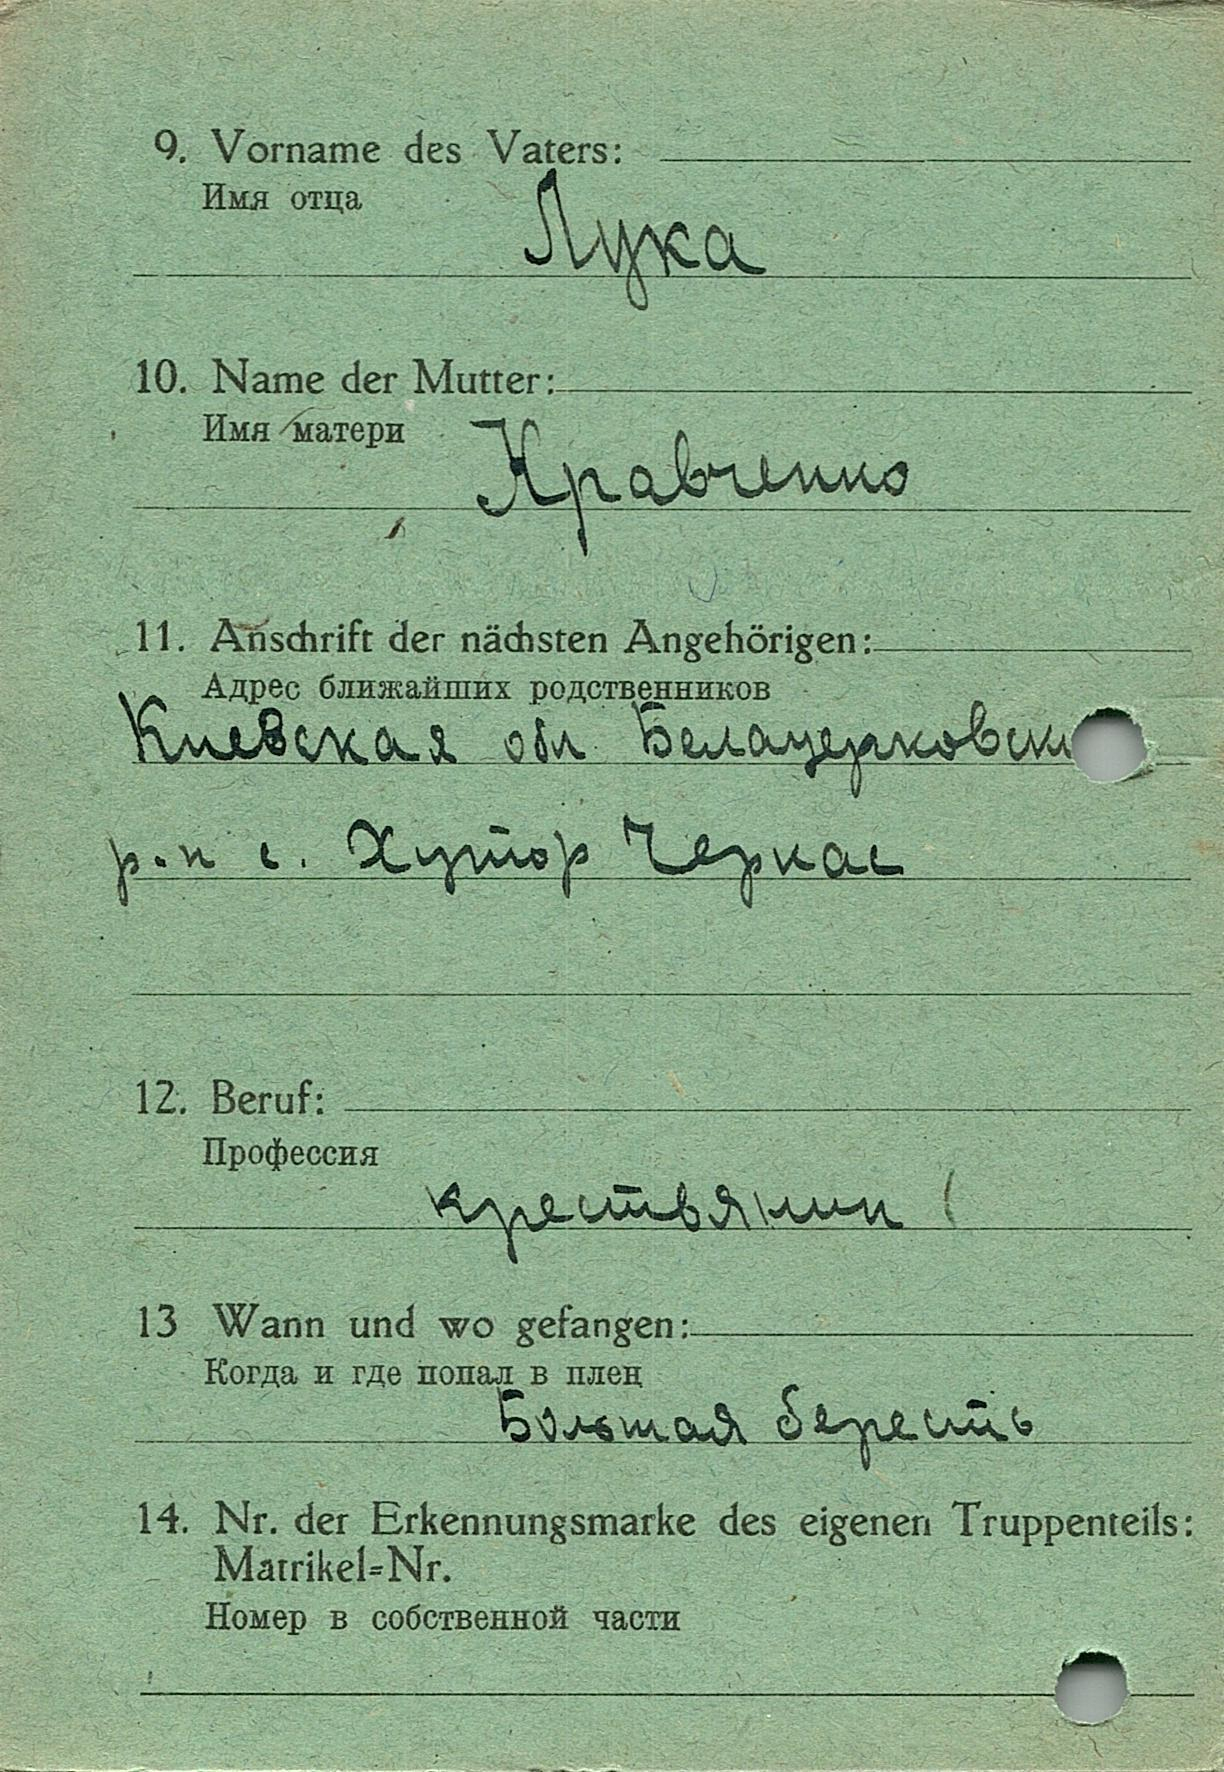 9. Vorname des Vaters:
Имя отца
Лука
10. Name der Mutter:
Имя матери
Кравченко
11. Anschrift der nächsten Angehörigen:
Адрес ближайших родственников
Киевская обл Белацерковски
р-н с. Хутор Черкас
12. Beruf:
Профессия
крествянин
13 Wann und wo gefangen:
Когда и где попал в плен
Большая бересть
14. Nr. der Erkennungsmarke des eigenen Truppenteils:
Matrikel=Nr.
Номер в собственной части